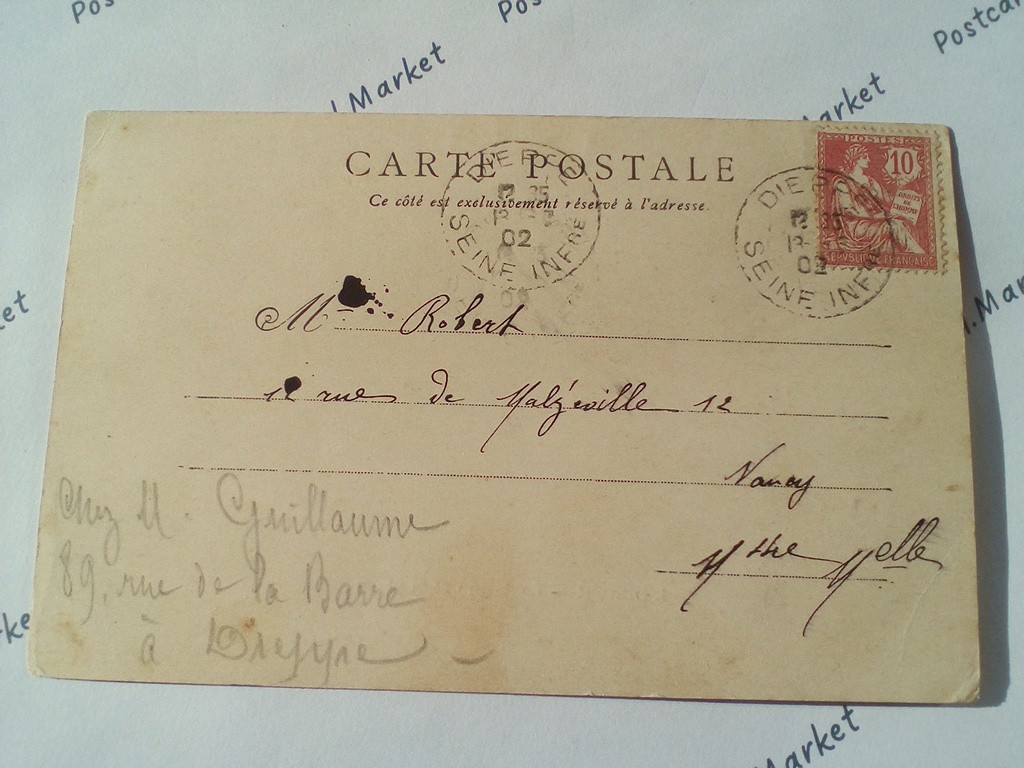 Postcard
Market
J.Market
Market
CARTE POSTALE
Ce côté est exclusivement réservé à l'adresse.
DIEPPE
02
SEINE INFRE
DIEPPE
02
SEINE INFRE
POSTES
10
DROITS DE L'HOMME
REPUBLIQUE FRANÇAISE
Mme Robert
12 rue de Malzéville 12
Nancy
Mthe Melle
Chez M. Guillaume
89, rue de la Barre
à Dieppe
Market